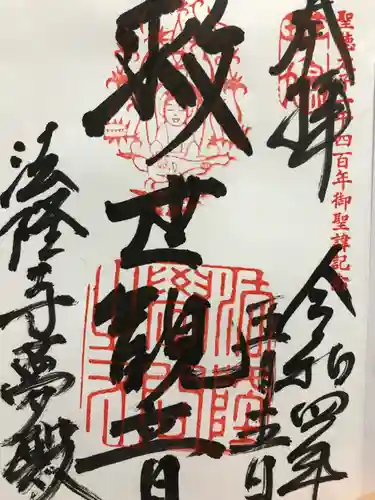 聖徳太子一千四百年御聖諱記念
奉拝
令和四年
五月五日
救世観音
法隆寺夢殿